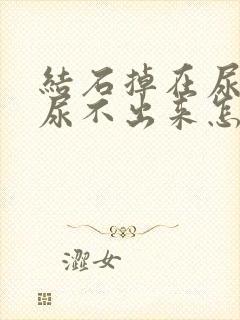 結石掉在尿
尿不出来怎
澀女